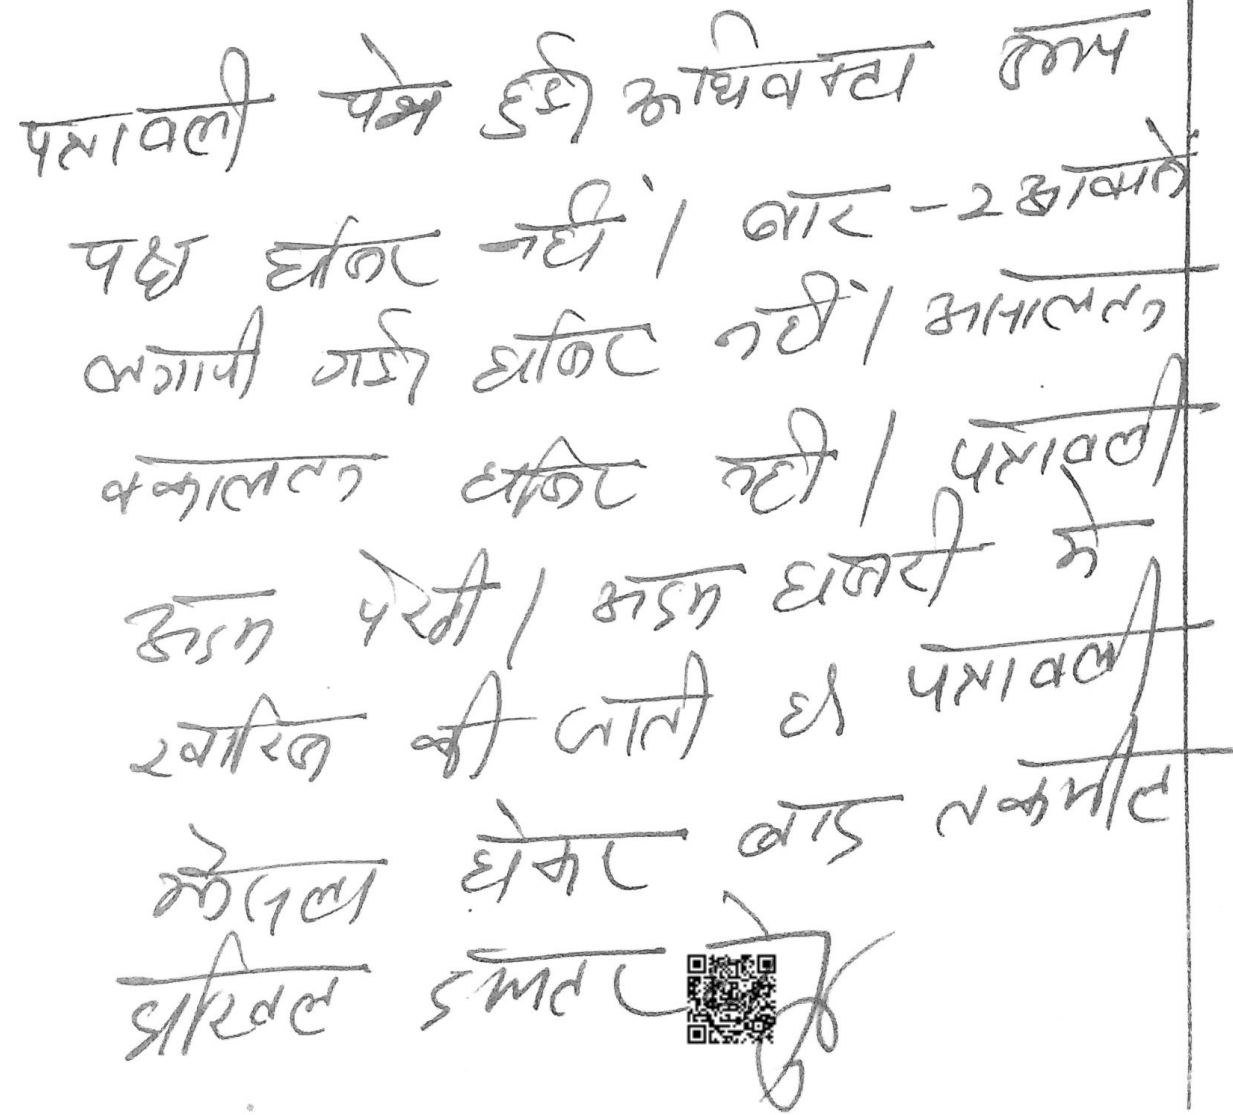 पत्रावली पेश हुई। अधिवक्ता उभय
पक्ष हाजिर नहीं। बार -2 आवाजें
लगायी गई। हाजिर नहीं। असालतन
वकालतन हाजिर नहीं। पत्रावली
अदम पैरवी। अदम हाजरी में
खारिज की जाती है। पत्रावली
फैसला होकर बाद तकमील
दाखिल दफ्तर हो।